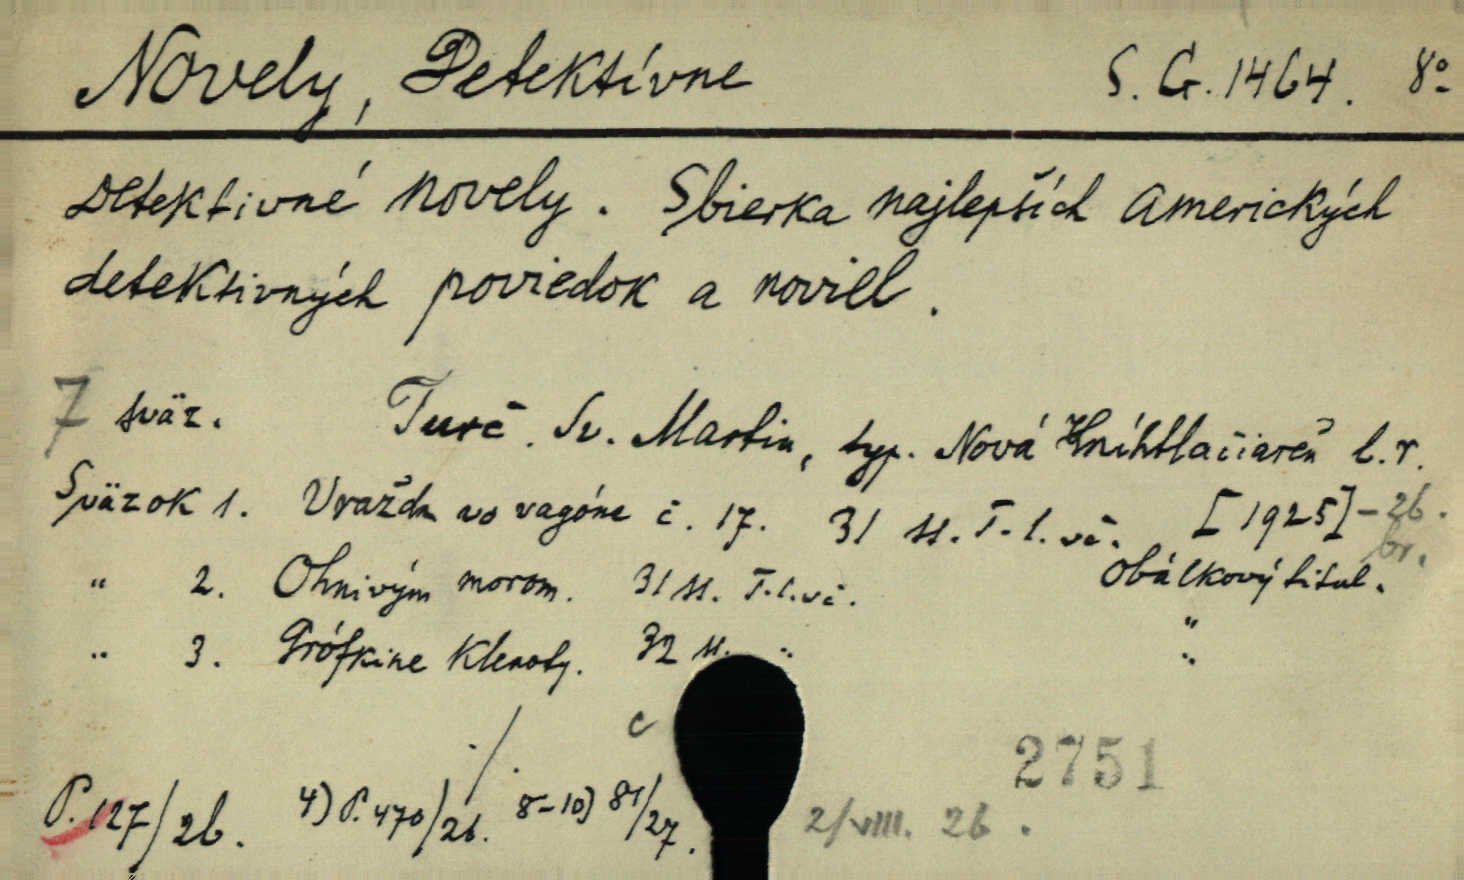 Novely, Detektívne S. G. 1464. 8°
Detektivné novely. Sbierka najlepších amerických
detektivných poviedok a noviel.
7 sväz. Turč. Sv. Martin, typ. Nová Kníhtlačiareň l. r.
[1925]-26.
br.
Sväzok 1. Vražda vo vagóne č. 17. 31 st. T. l. vč. Obálkový titul.
" 2. Ohnivým morom. 31 st. T. l. vč. "
" 3. Grófkine klenoty. 32 st. " "
./. c
2751
P. 127/26. 4) P. 470/26. 8-10) 81/27. 2/VIII. 26.